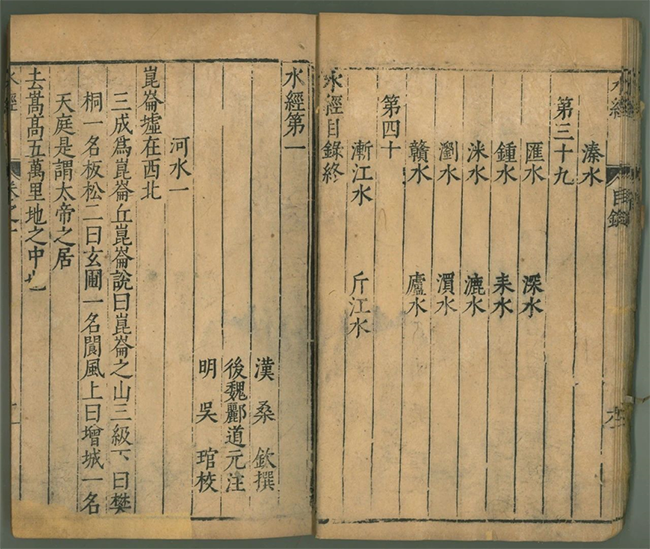 水經
目錄
溱水
第三十九
匯水 深水
鍾水 耒水
洣水 漉水
瀏水
贛水 廬水
第四十
漸江水 斤江水
水經目錄終
水經第一
漢桑欽撰
後魏酈道元注
明吳琯校
河水一
崑崙墟在西北
三成爲崑崙丘崑崙說曰崑崙之山三級下曰樊
桐一名板松二曰玄圃一名閬風上曰增城一名
天庭是謂太帝之居
去嵩高五萬里地之中也
水經
卷之一